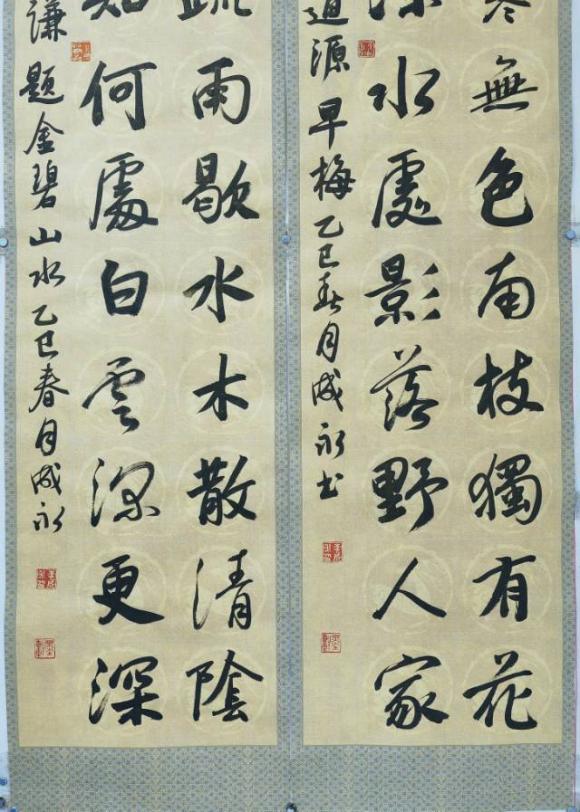 無色南枝獨有花
水處影落野人家
道源早梅 乙巳春月成永书
疏雨歇水木散清陰
知何處白雲深更深
謙題金碧山水 乙巳春月成永